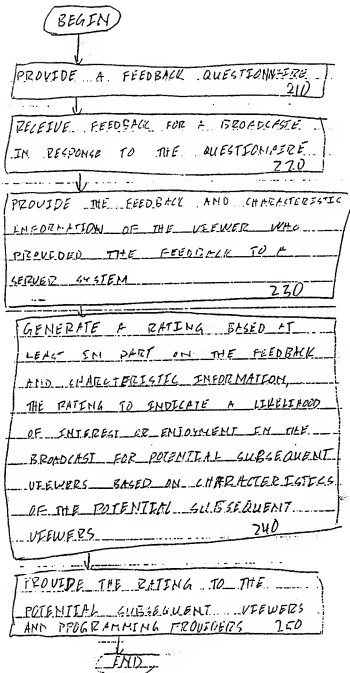 BEGIN
PROVIDE A FEEDBACK QUESTIONNAIRE
210
RECEIVE FEEDBACK FOR A BROADCAST
IN RESPONSE TO THE QUESTIONAIRE
220
PROVIDE THE FEEDBACK AND CHARACTERISTIC
INFORMATION OF THE VIEWER WHO
PROVIDED THE FEEDBACK TO A
SERVER SYSTEM
230
GENERATE A RATING BASED AT
LEAST IN PART ON THE FEEDBACK
AND CHARACTERISTIC INFORMATION,
THE RATING TO INDICATE A LIKELIHOOD
OF INTEREST OR ENJOYMENT IN THE
BROADCAST FOR POTENTIAL SUBSEQUENT
VIEWERS BASED ON CHARACTERISTICS
OF THE POTENTIAL SUBSEQUENT
VIEWERS 240
PROVIDE THE RATING TO THE
POTENTIAL SUBSEQUENT VIEWERS
AND PROGRAMMING PROVIDERS 250
END